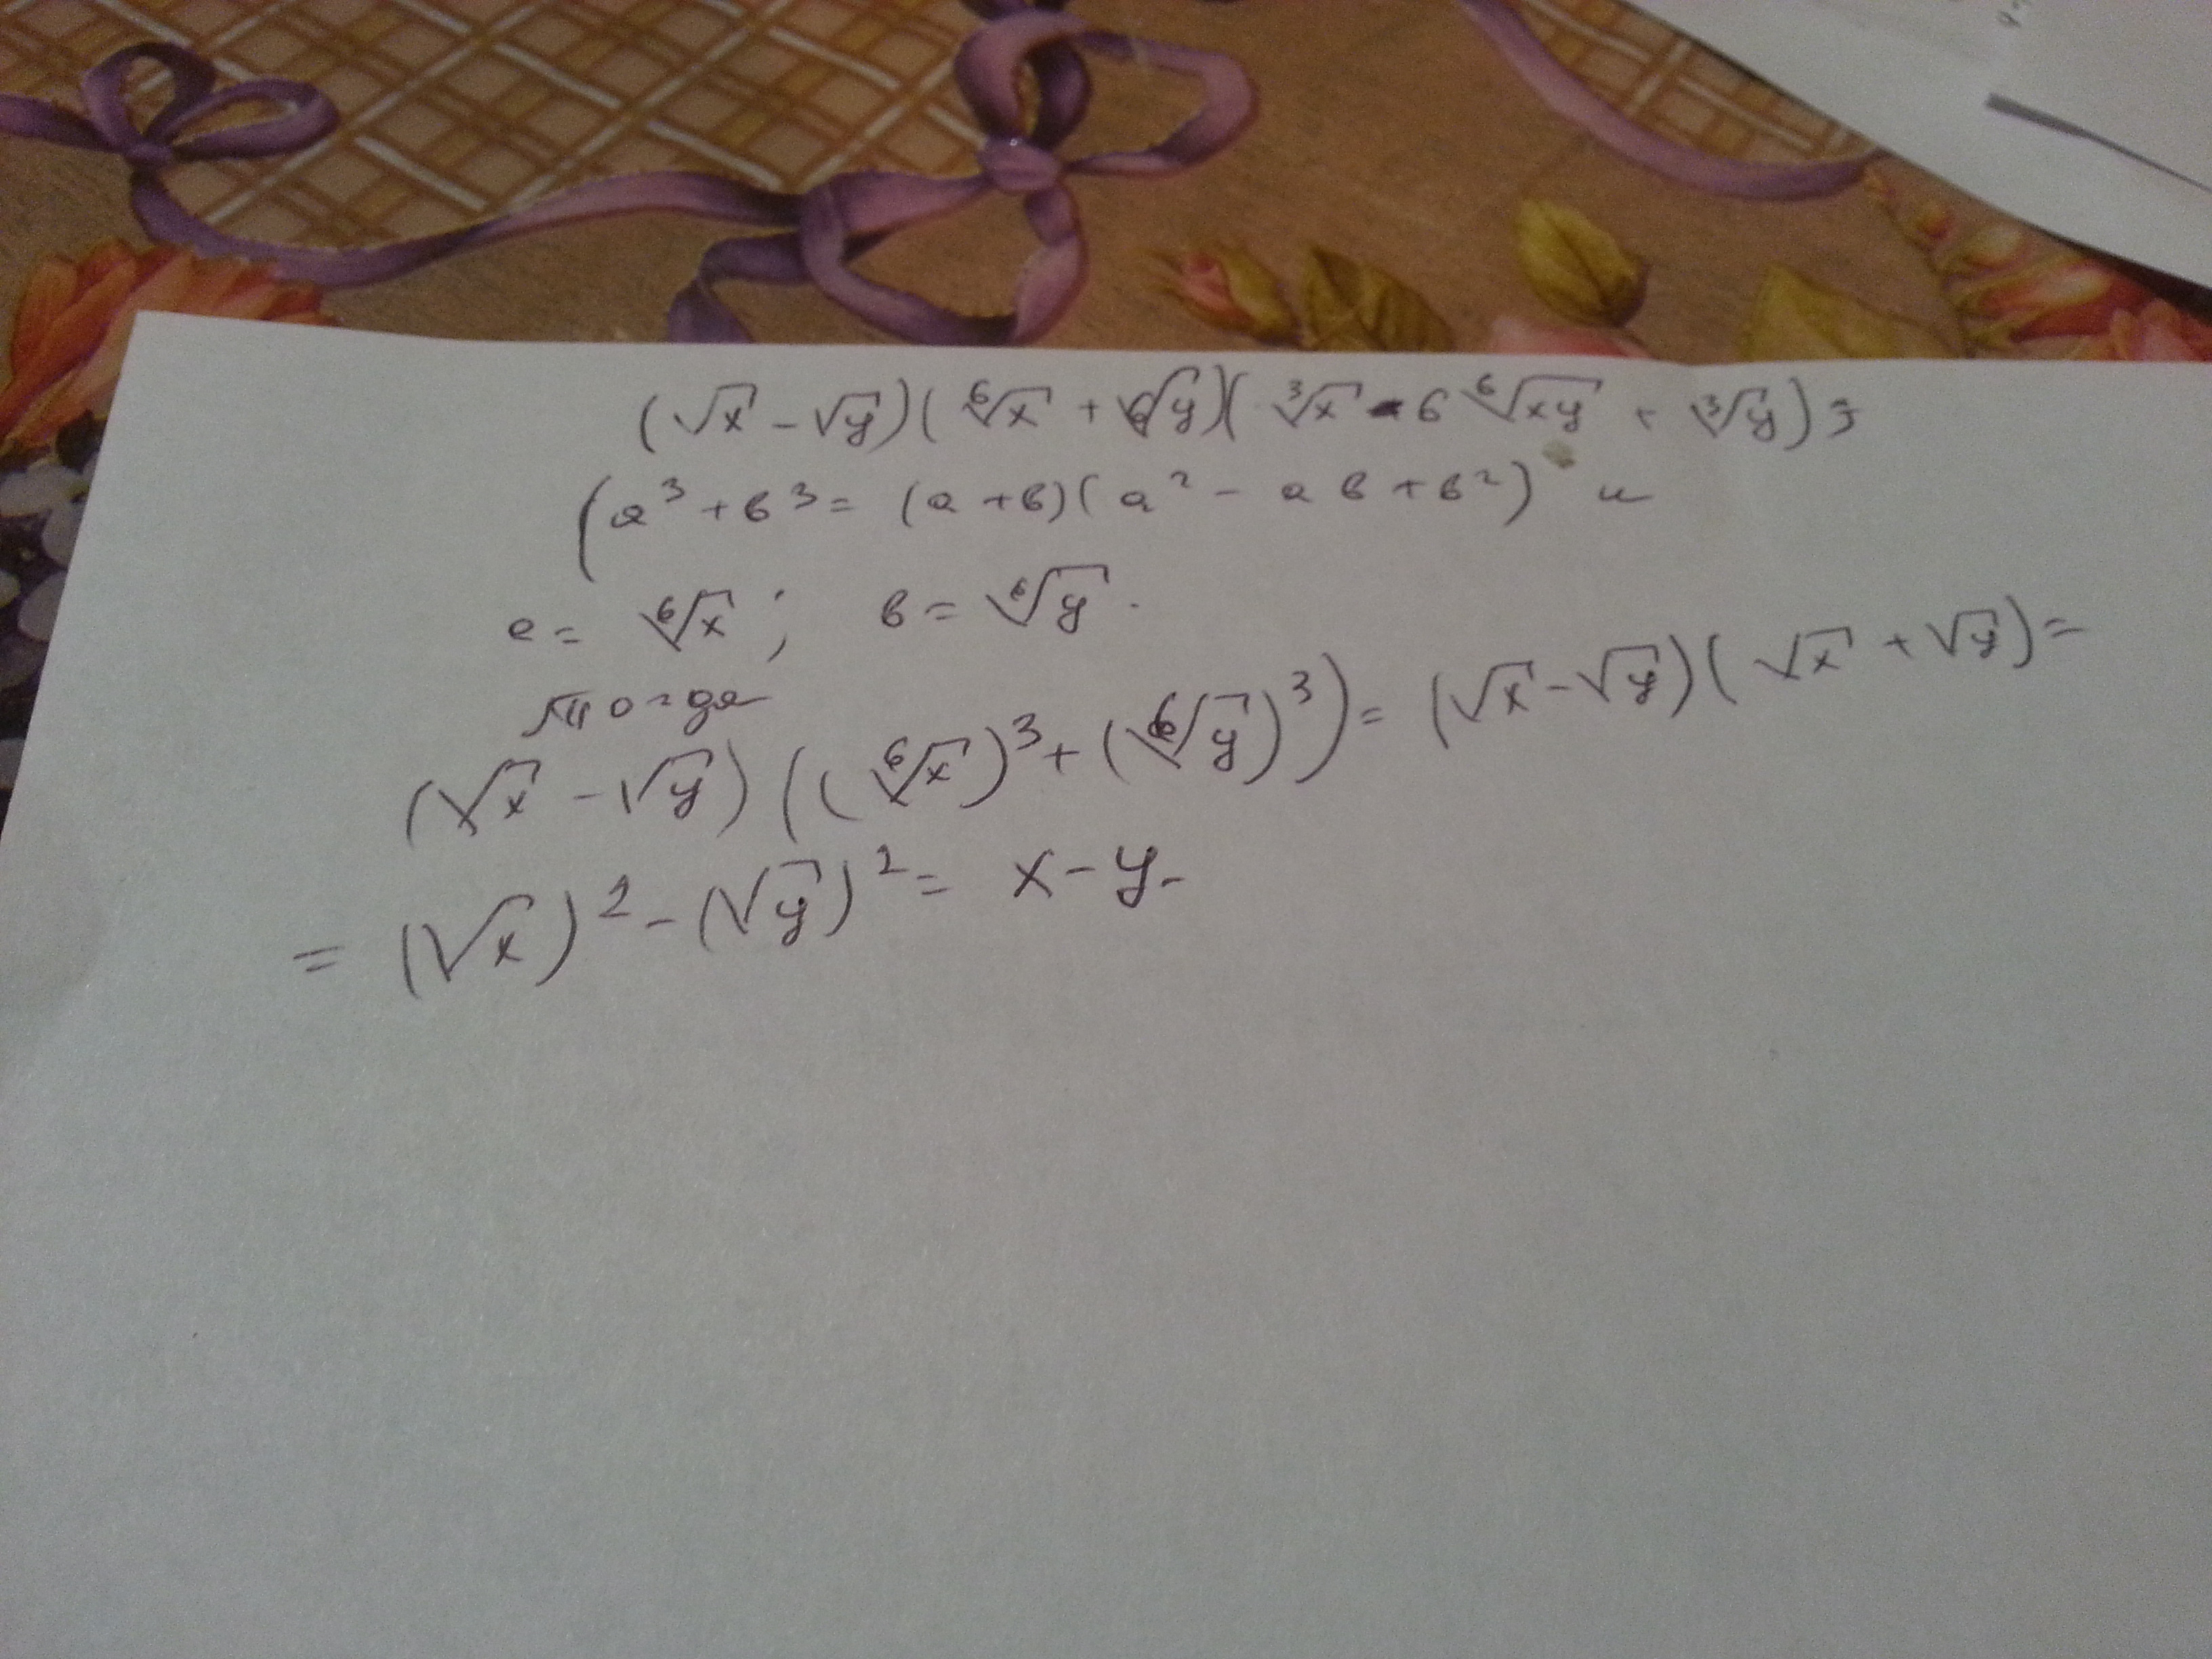 (√x - √y)(⁶√x + ⁶√y)(³√x - 6 ⁶√xy + ³√y) =
(a³ + b³ = (a + b)(a² - ab + b²) и
a = ⁶√x ; b = ⁶√y .
тогда
(√x - √y)((⁶√x)³ + (⁶√y)³) = (√x - √y)(√x + √y) =
= (√x)² - (√y)² = x - y.